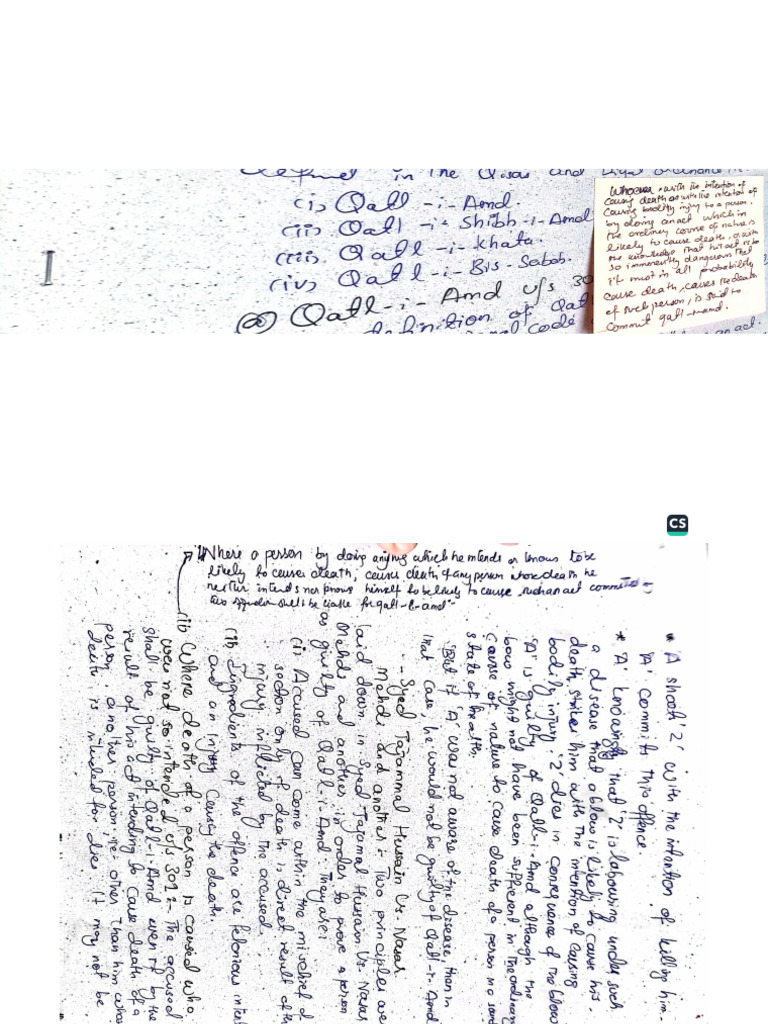 defined in the Qisas and
(i) Qatl -i- Amd.
(ii) Qatl -i- Shibh-i-Amd
(iii) Qatl -i- Khata.
(iv) Qatl-i-Bis-Sabab.
(a) Qatl-i-Amd u/s 30
definition of Qatl
Code
an act.
Whoever, with the intention of
causing death or with the intention of
causing bodily injury to a person,
by doing an act which in
the ordinary course of nature is
likely to cause death, or with
the knowledge that his act is
so imminently dangerous that
it must in all probability
cause death, causes the death
of such person, is said to
commit qatl-i-amd.
CS
Where a person by doing anything which he intends or knows to be
likely to causes death, causes death of any person whose death he
neither intends nor knows himself to be likely to cause, such an act committed
shall be liable for qatl-i-amd"
* 'A' shoots 'Z' with the intention of killing him.
'A' commits this offence.
* 'A' knowing that 'Z' is labouring under such
a disease that a blow is likely to cause his
death, strikes him with the intention of causing
bodily injury. 'Z' dies in consequence of the blow
'A' is guilty of Qatl-i-Amd although the
blow might not have been sufficient in the ordinary
course of nature to cause death of a person in a sound
state of health.
But if 'A' was not aware of the disease, then in
that case, he would not be guilty of Qatl-i-Amd
- Syed Tajammal Hussain Vs. Nasar
Mehdi and another :- Two principles were
laid down in Syed Tajamal Hussain Vs. Nasar
Mehdi and another in order to prove a person
as guilty of Qatl-i-Amd. They are:
(i) Accused can come within the mischief of
section only if death is direct result of the
injury inflicted by the accused.
(ii) Ingredients of the offence are felonious intent
and an injury causing the death.
(ii) Where death of a person is caused who
was not so intended u/s 301 :- The accused
shall be guilty of Qatl-i-Amd even if by the
result of his act intending to cause death of a
person, another person, i.e. other than him whose
death is intended for dies. It may not be